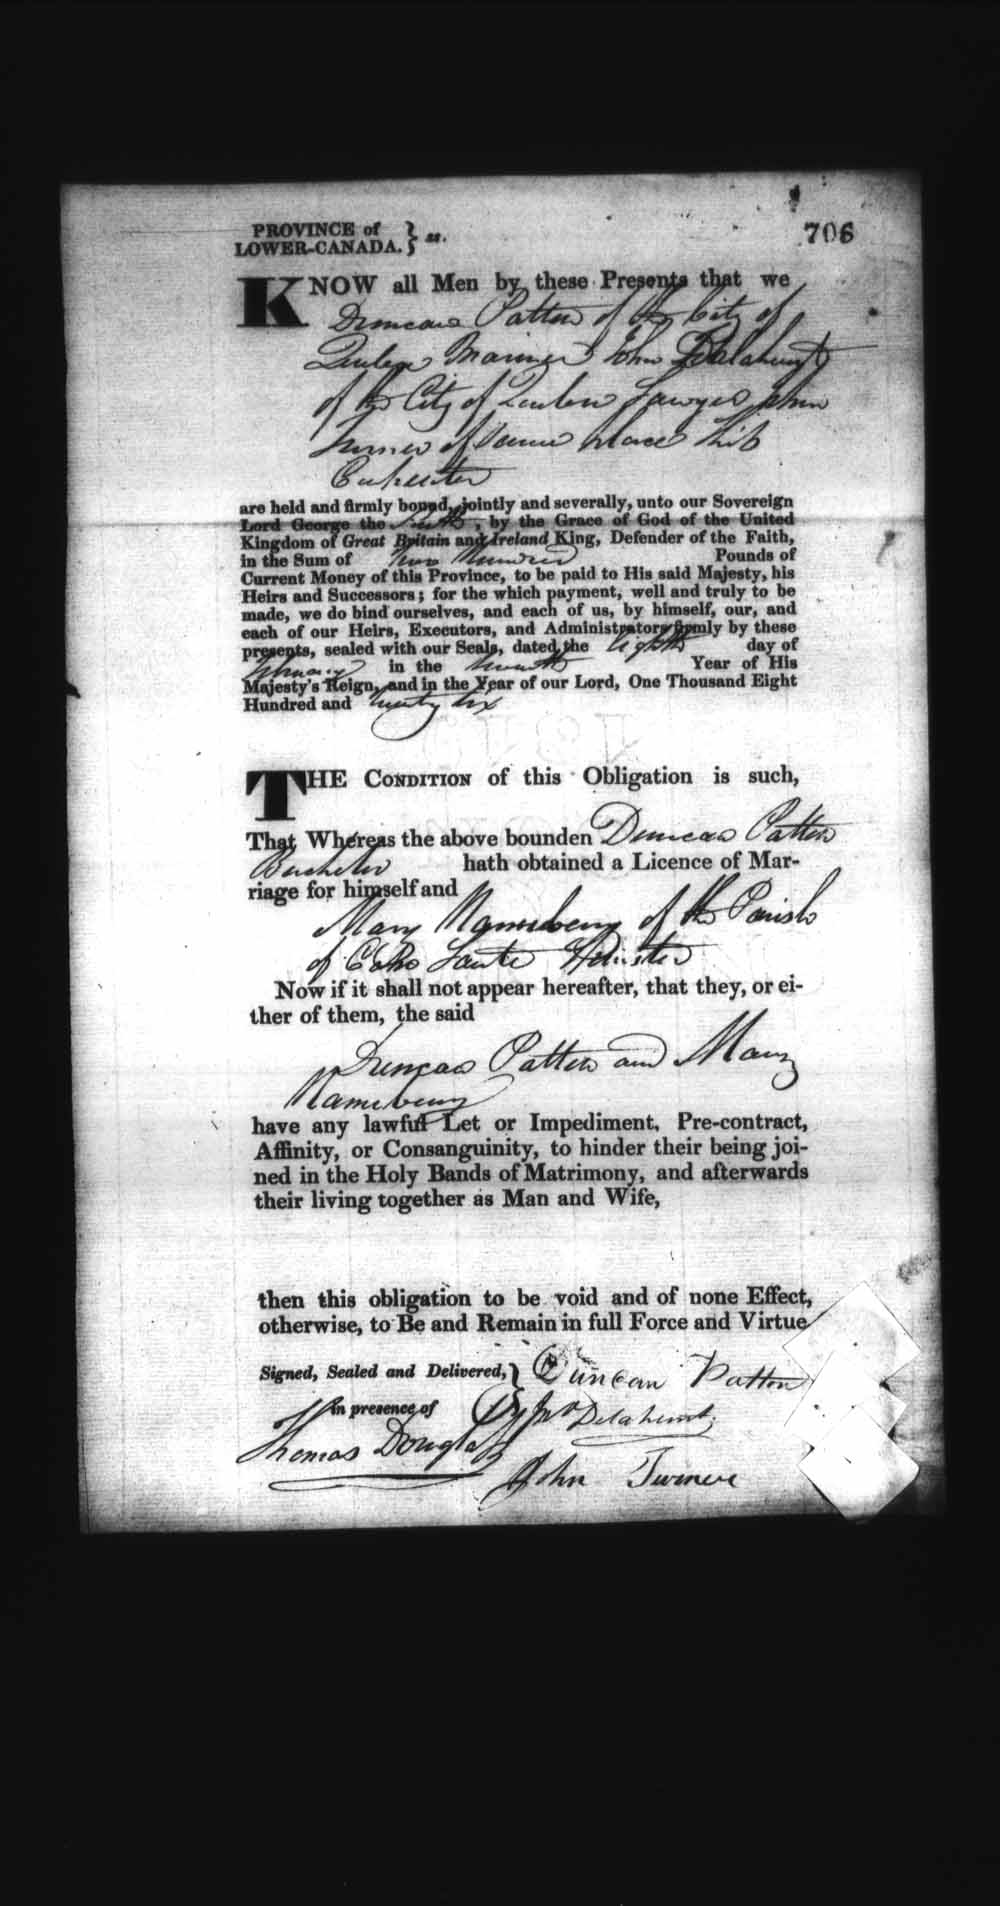 PROVINCE of
LOWER-CANADA. } ss.
706
KNOW all Men by these Presents that we
Duncan Patton of the City of
Quebec Mariner John Delahunt
of the City of Quebec Sawyer John
Turner of same place Ship
Carpenter
are held and firmly bound, jointly and severally, unto our Sovereign
Lord George the Fourth, by the Grace of God of the United
Kingdom of Great Britain and Ireland King, Defender of the Faith,
in the Sum of Two Hundred Pounds of
Current Money of this Province, to be paid to His said Majesty, his
Heirs and Successors; for the which payment, well and truly to be
made, we do bind ourselves, and each of us, by himself, our, and
each of our Heirs, Executors, and Administrators firmly by these
presents, sealed with our Seals, dated the Eighth day of
in the Year of His
Majesty's Reign, and in the Year of our Lord, One Thousand Eight
Hundred and twenty six
THE CONDITION of this Obligation is such,
That Whereas the above bounden Duncan Patton
Bachelor hath obtained a Licence of Mar-
riage for himself and
Mary of the Parish
of Spinster
Now if it shall not appear hereafter, that they, or ei-
ther of them, the said
Duncan Patton and Mary
have any lawful Let or Impediment, Pre-contract,
Affinity, or Consanguinity, to hinder their being joi-
ned in the Holy Bands of Matrimony, and afterwards
their living together as Man and Wife,
then this obligation to be void and of none Effect,
otherwise, to Be and Remain in full Force and Virtue
Signed, Sealed and Delivered, } Duncan Patton
in presence of Jno Delahunt
Thomas Douglas
John Turner